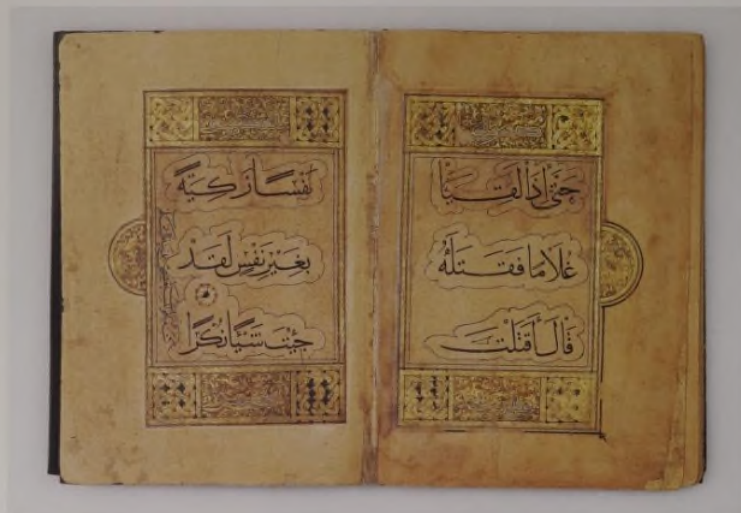 حَتَّى إِذَا لَقِيَا
غُلَامًا فَقَتَلَهُ
قَالَ أَقَتَلْتَ
نَفْسًا زَكِيَّةً
بِغَيْرِ نَفْسٍ لَقَدْ
جِئْتَ شَيْئًا نُكْرًا